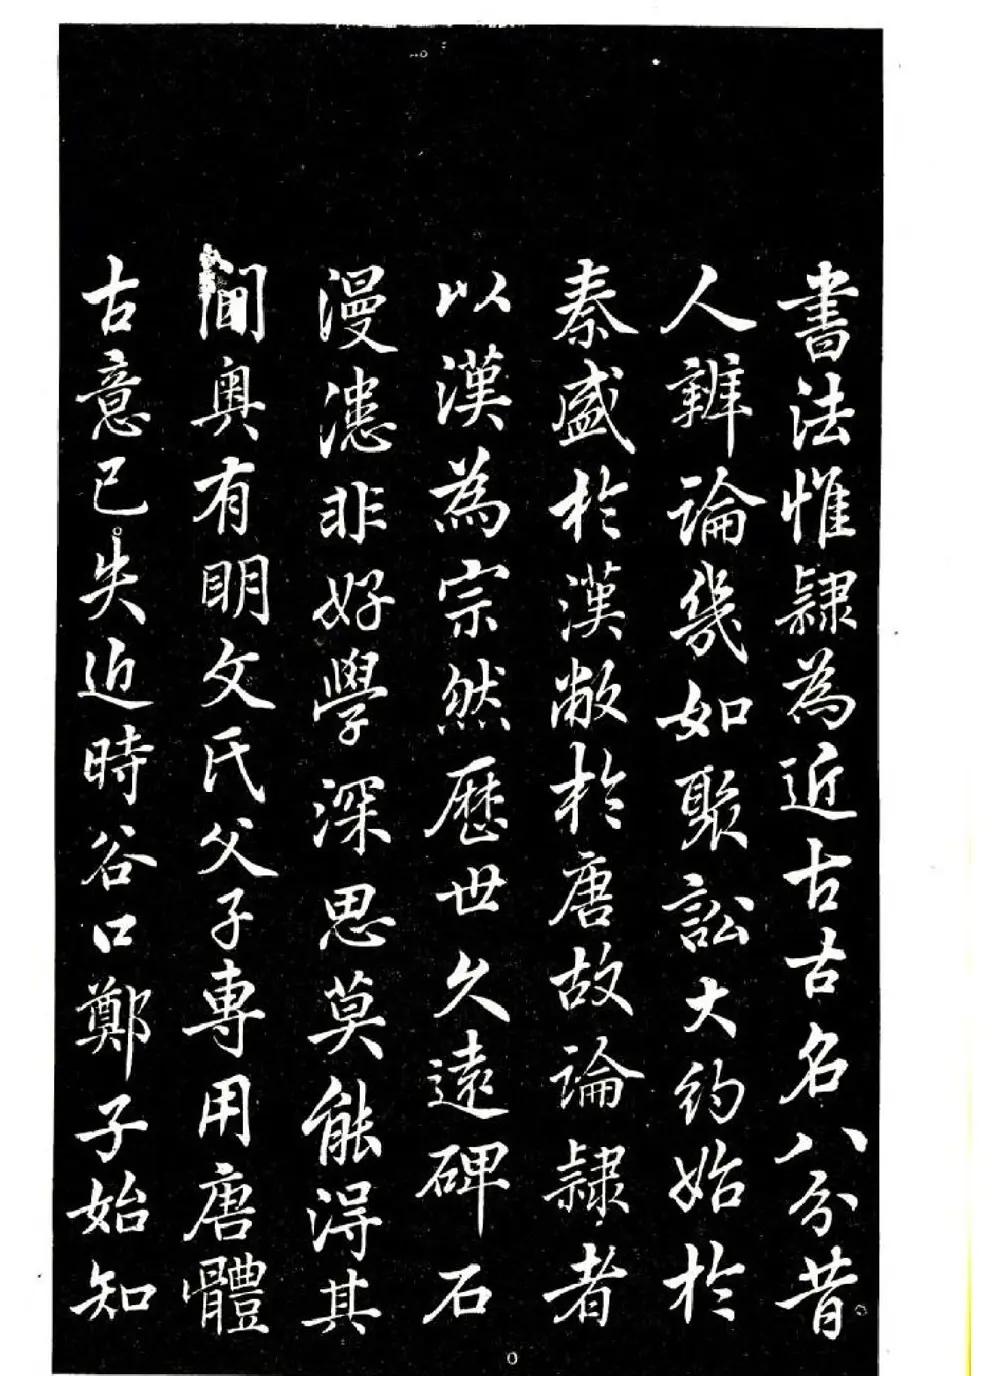 書法惟隸為近古古名八分昔
人辨論幾如聚訟大約始於
秦盛於漢敝於唐故論隸者
以漢為宗然歷世久遠碑石
漫漶非好學深思莫能得其
閫奧有明文氏父子專用唐體
古意已失近時谷口鄭子始知